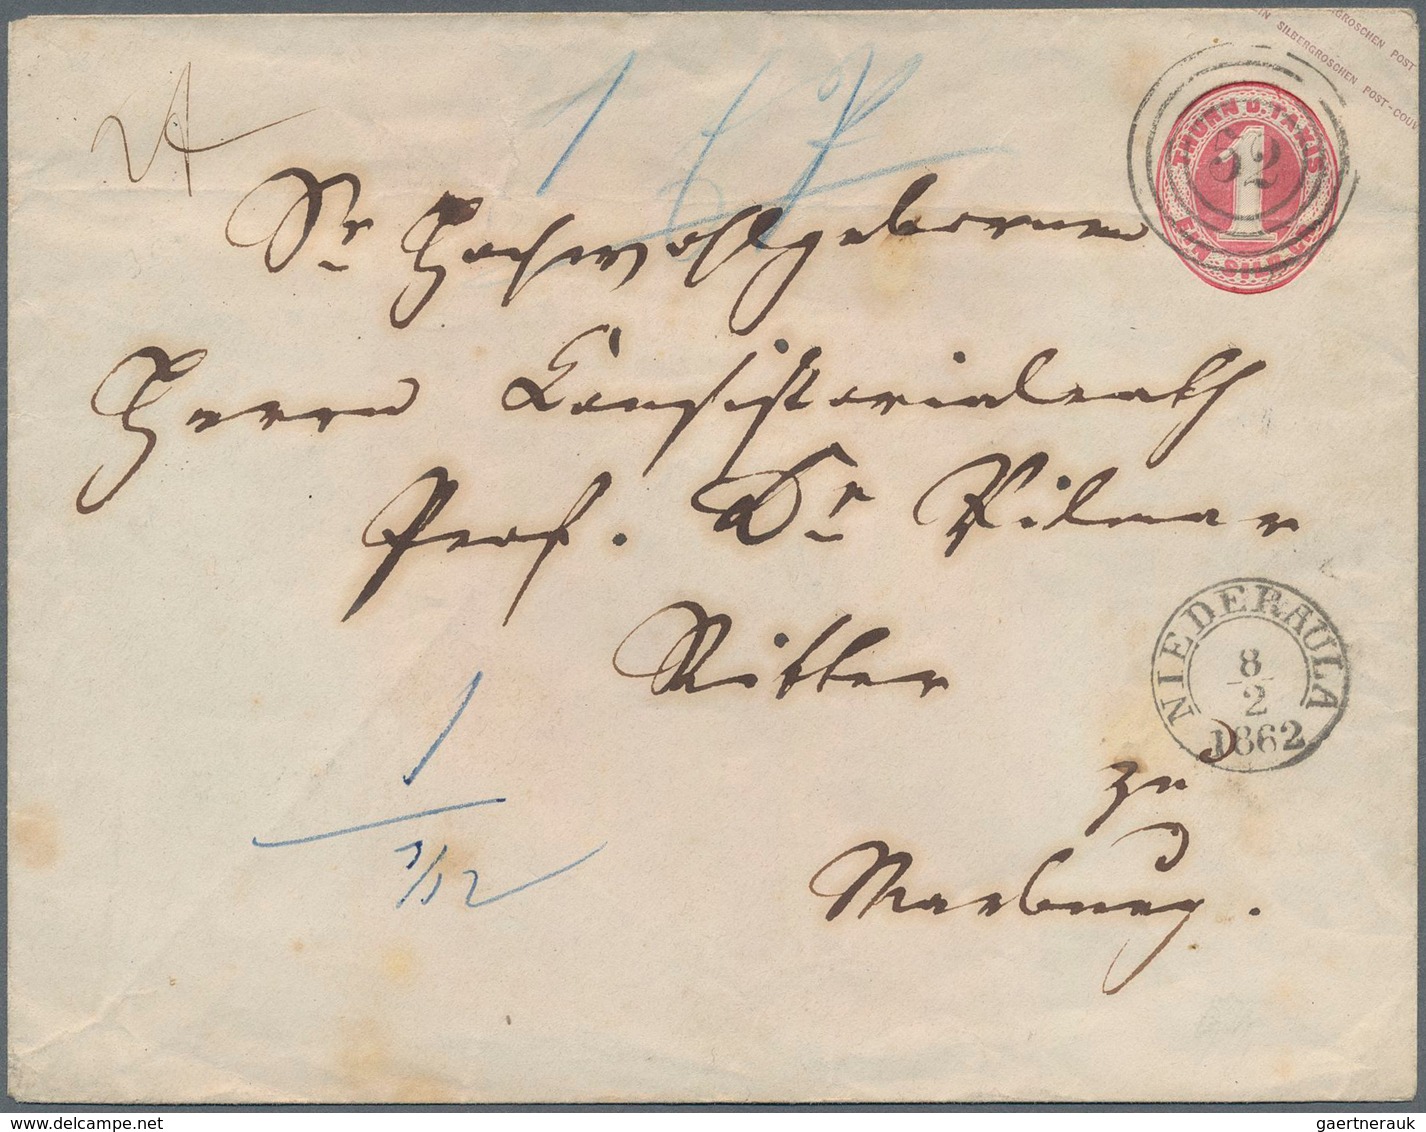 EIN SILBERGROSCHEN POST-COUV
GROSCHEN POST
THURN U. TAXIS
1
EIN SILB. GR.
1
Sr Hochwohlgeboren
Herrn Consistorialrath
Prof. Dr Vilmar
Ritter
zu
Marburg.
NIEDERAULA
8
2
1862
1
1/12
www.delcampe.net
gaertnerauk